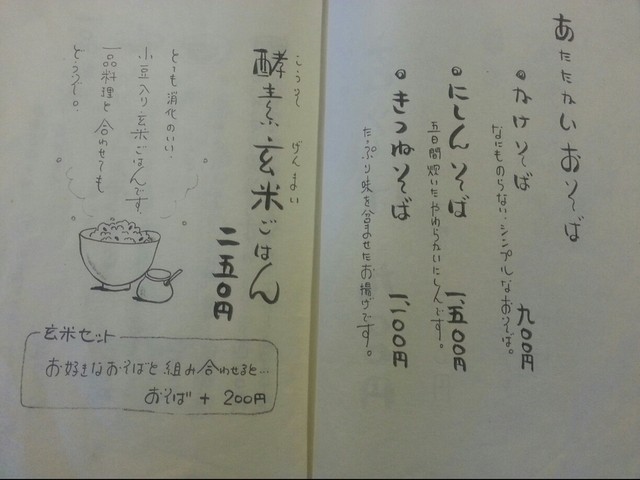 あたたかいおそば
・かけそば 九〇〇円
なにものらないシンプルなおそば。
・にしんそば 一、五〇〇円
五日間炊いたやわらかいにしんです。
・きつねそば 一、一〇〇円
たっぷり味を含ませたお揚げです。
こうそ げんまい
酵素玄米ごはん
二五〇円
とても消化のいい、
小豆入り玄米ごはんです。
一品料理と合わせても
どうぞ。
玄米セット
お好きなおそばと組み合わせると…
おそば + 200円